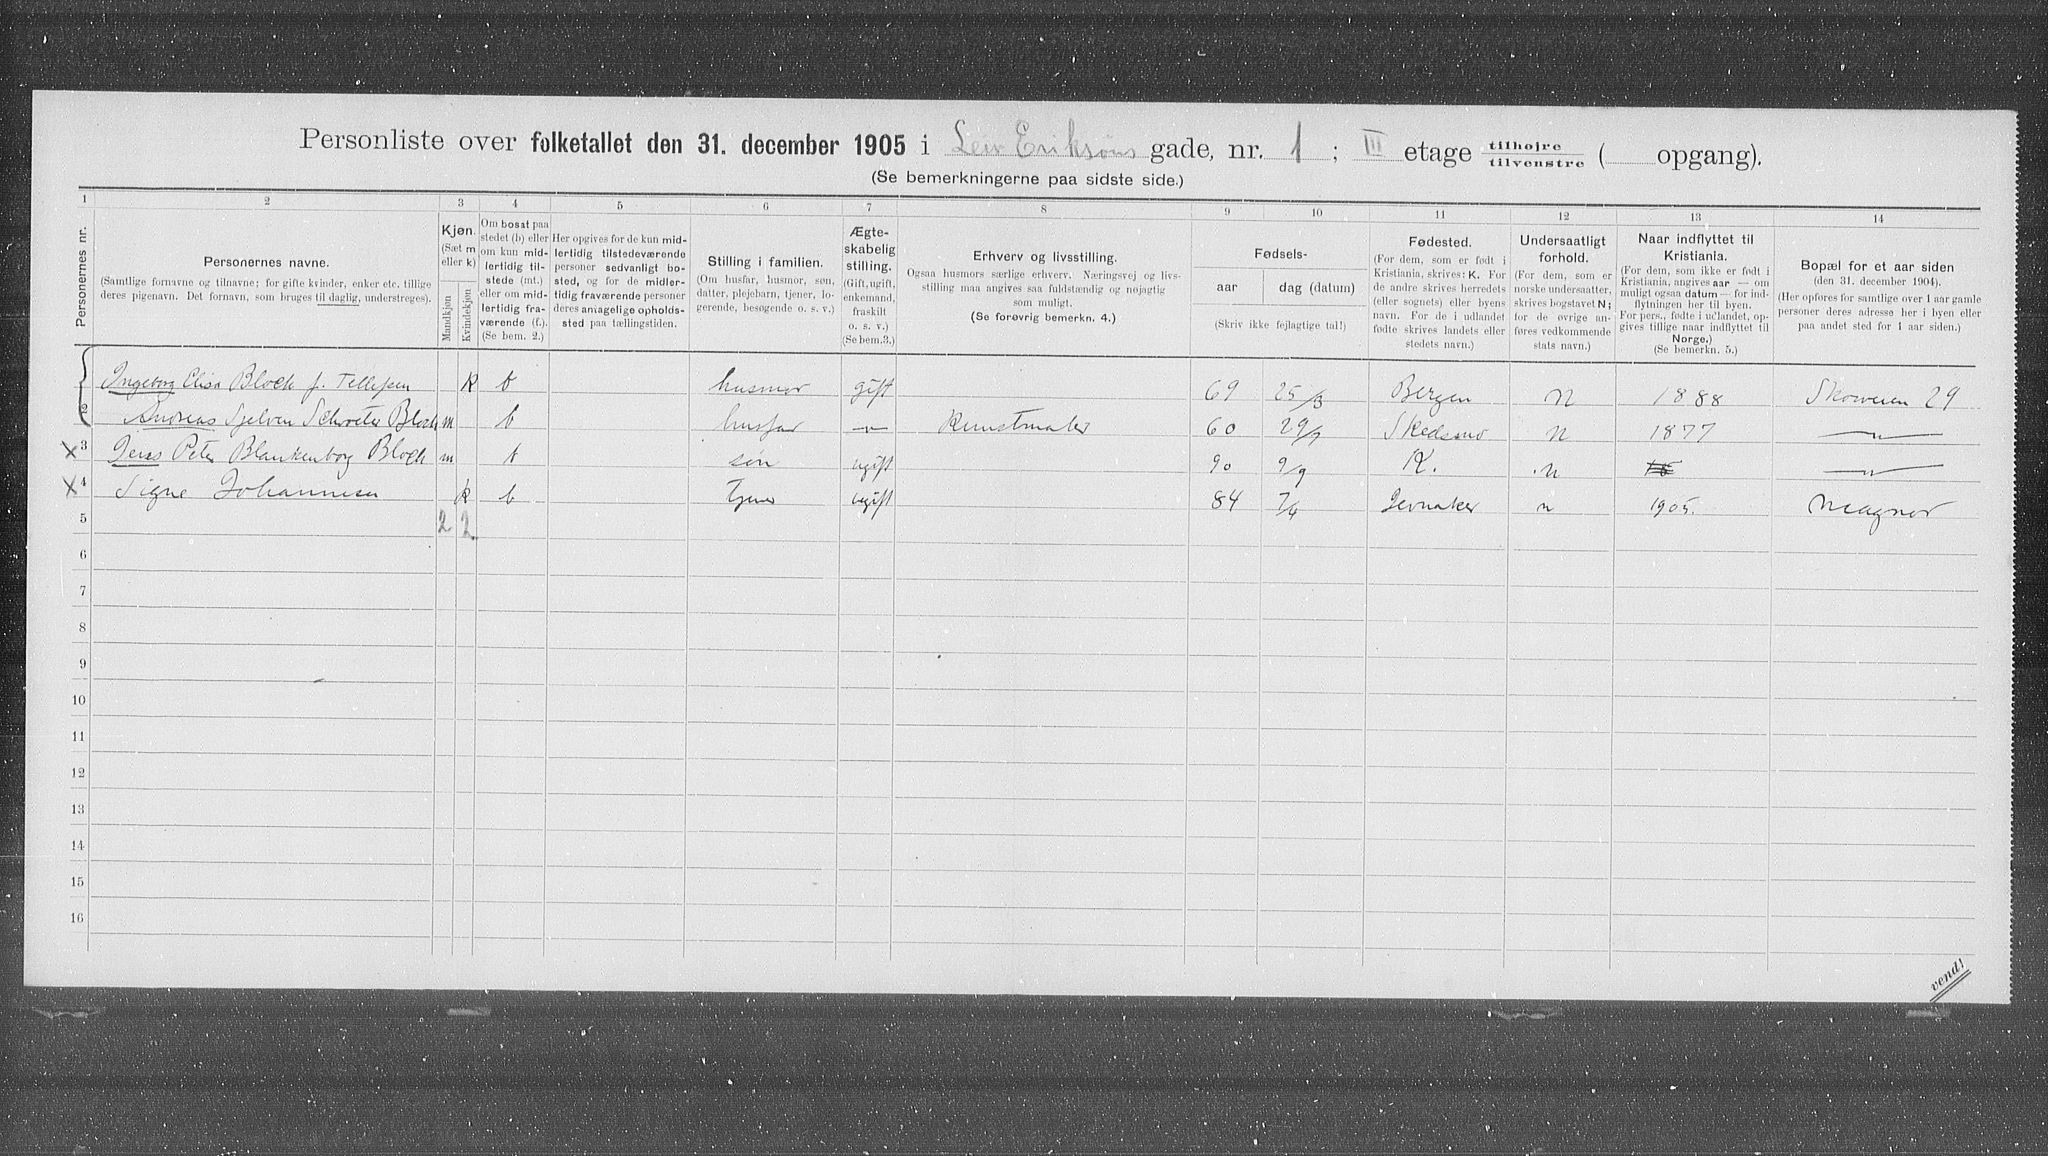 Personliste over folketallet den 31. december 1905 i Leiv Eriksøns gade, nr. 1 ; III etage tilhøjre / tilvenstre ( opgang).
(Se bemerkningerne paa sidste side.)
1 2 3 4 5 6 7 8 9 10 11 12 13 14
Personernes nr.
Personernes navne.
(Samtlige fornavne og tilnavne; for gifte kvinder, enker etc. tillige
deres pigenavn. Det fornavn, som bruges til daglig, understreges).
Kjøn.
(Sæt m
eller k)
Mandkjøn
Kvindekjøn
Om bosat paa
stedet (b) eller
om kun mid-
lertidig til-
stede (mt.)
eller om mid-
lertidig fra-
værende (f.).
(Se bem. 2.)
Her opgives for de kun mid-
lertidig tilstedeværende
personer sedvanligt bo-
sted, og for de midler-
tidig fraværende personer
deres antagelige opholds-
sted paa tællingstiden.
Stilling i familien.
(Om husfar, husmor, søn,
datter, plejebarn, tjener, lo-
gerende, besøgende o. s. v.)
Ægte-
skabelig
stilling.
(Gift, ugift,
enkemand,
fraskilt
o. s. v.)
(Se bem.3.)
Erhverv og livsstilling.
Ogsaa husmors særlige erhverv. Næringsvej og livs-
stilling maa angives saa fuldstændig og nøjagtig
som muligt.
(Se forøvrig bemerkn. 4.)
Fødsels-
aar dag (datum)
(Skriv ikke fejlagtige tal!)
Fødested.
(For dem, som er født i
Kristiania, skrives: K. For
de andre skrives herredets
(eller sognets) eller byens
navn. For de i udlandet
fødte skrives landets eller
stedets navn.)
Undersaatligt
forhold.
(For dem, som er
norske undersaatter,
skrives bogstavet N;
for de øvrige an-
føres vedkommende
stats navn.)
Naar indflyttet til
Kristiania.
(For dem, som ikke er født i
Kristiania, angives aar — om
muligt ogsaa datum — for ind-
flytningen her til byen.
For pers., fødte i udlandet, op-
gives tillige naar indflyttet til
Norge.)
(Se bemerkn. 5.)
Bopæl for et aar siden
(den 31. december 1904).
(Her opføres for samtlige over 1 aar gamle
personer deres adresse her i byen eller
paa andet sted for 1 aar siden.)
Ingeborg Elisa Bloch f. Tellefsen k b husmor gift 69 25/3 Bergen N 1888 Skovveien 29
2 Andreas Sjelven Schroter Bloch m b husfar — " — Kunstmaler 60 29/7 Skedsmo N 1877 — " —
x 3 Jens Peter Blankenborg Bloch m b søn ugift 90 9/9 K. N — " —
x 4 Signe Johannesen k b tjener ugift 84 7/4 Jevnaker n 1905. Magnor
5 2 2
6
7
8
9
10
11
12
13
14
15
16
vend!